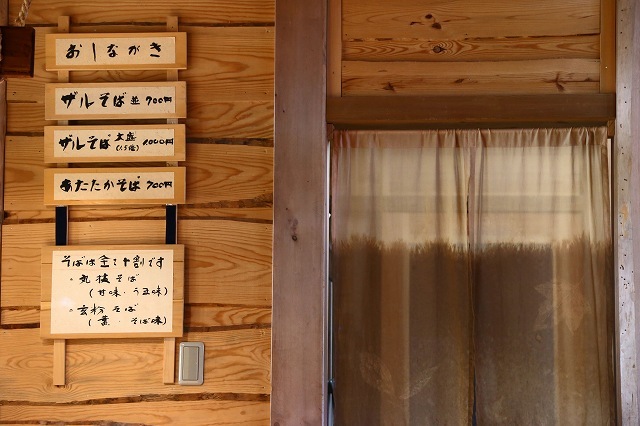 おしながき
ザルそば 並 700円
ザルそば 大盛 (1.5倍) 1,000円
あたたかそば 700円
そばは全て十割です
・丸抜そば
(甘味・うま味)
・玄粉そば
(香・そば味)